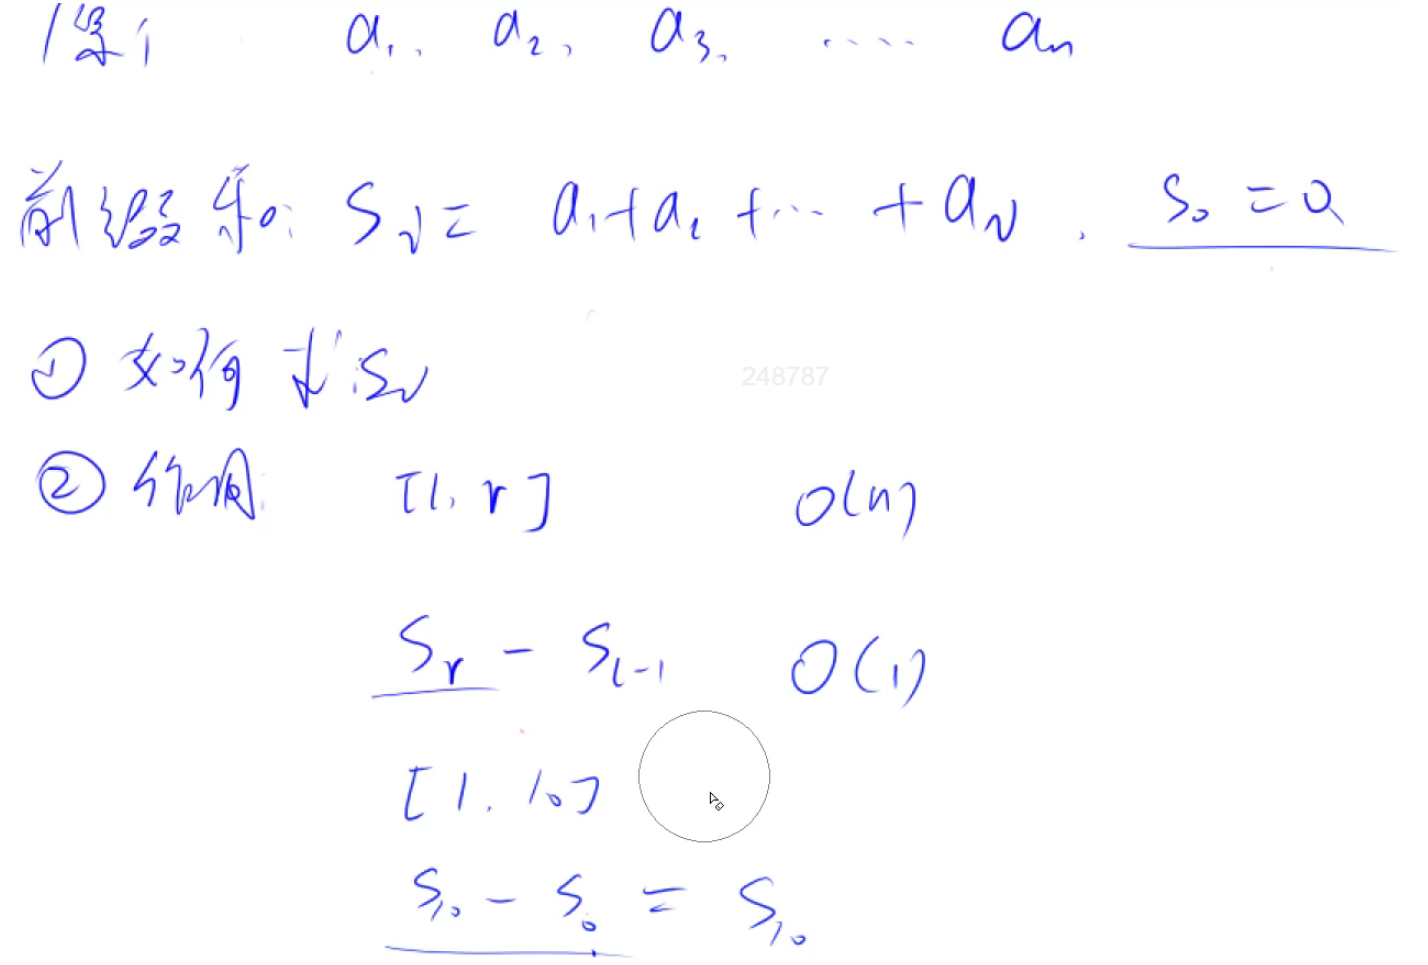 a₁, a₂, a₃, ..... aₙ
前缀和: Sᵢ = a₁+a₂ +... + aᵢ . S₀ = 0
① 如何求Sᵢ
248787
② 作用 [l, r] O(n)
Sᵣ - Sₗ₋₁ O(1)
[1, 10]
S₁₀ - S₀ = S₁₀